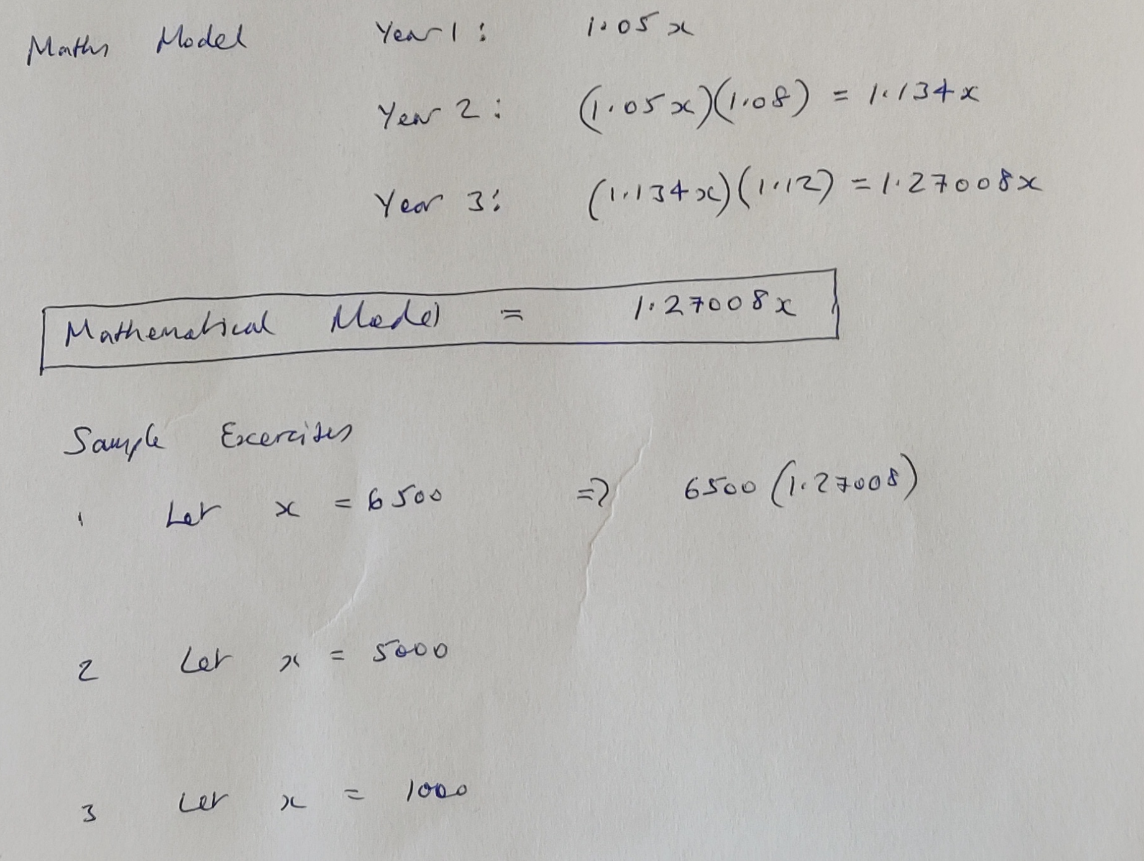 Maths Model Year 1: 1.05x
Year 2: (1.05x)(1.08) = 1.134x
Year 3: (1.134x)(1.12) = 1.27008x
Mathematical Model = 1.27008x
Sample Exercises
1 Let x = 6500 => 6500 (1.27008)
2 Let x = 5000
3 Let x = 1000